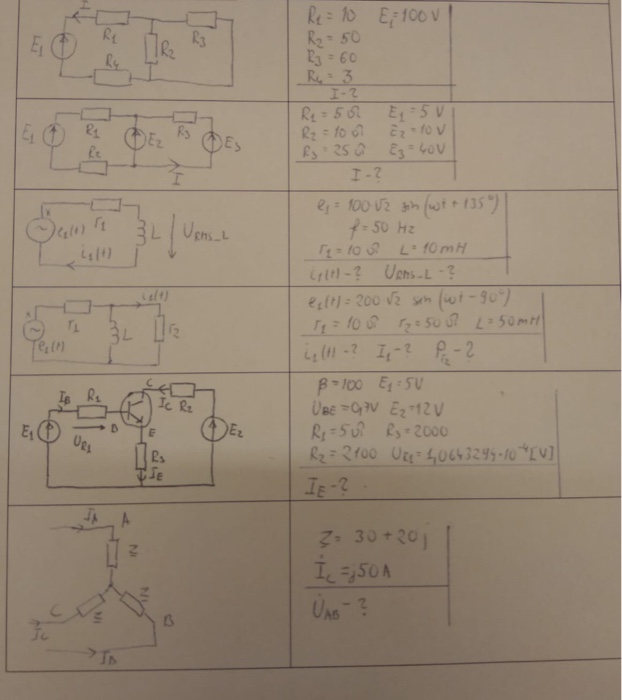 I
R1
R3
E1
R2
R4
R1 = 10 E1=100 V
R2 = 50
R3 = 60
R4 = 3
I-?
E1
R1
E2
R3
E3
R2
I
R1 = 5 Ω E1 = 5 V
R2 = 10 Ω E2 = 10V
R3 = 25 Ω E3 = 40V
I-?
e1(t)
r1
L
URMS_L
i1(t)
e1 = 100 √2 sin (ωt + 135°)
f = 50 Hz
r1 = 10 Ω L = 10 mH
i1(t) - ? URMS_L - ?
i1(t)
r1
L
r2
e1(t)
e1(t) = 200 √2 sin (ωt - 90°)
r1 = 10 Ω r2 = 50 Ω L = 50mH
i1(t) - ? I1 - ? Pr2 - ?
IB R1
C
IC R2
E1
B
E
E2
UR1
R3
IE
β = 100 E1 = 5V
UBE = 0,7V E2 = 12V
R1 = 5Ω R3 = 2000
R2 = 2100 UR1 = 1,0643294·10⁻⁴ [V]
IE - ?
IA A
Z
C
Z
Z
B
IC
IB
Z = 30 + 20j
İC = j50A
U̇AB - ?